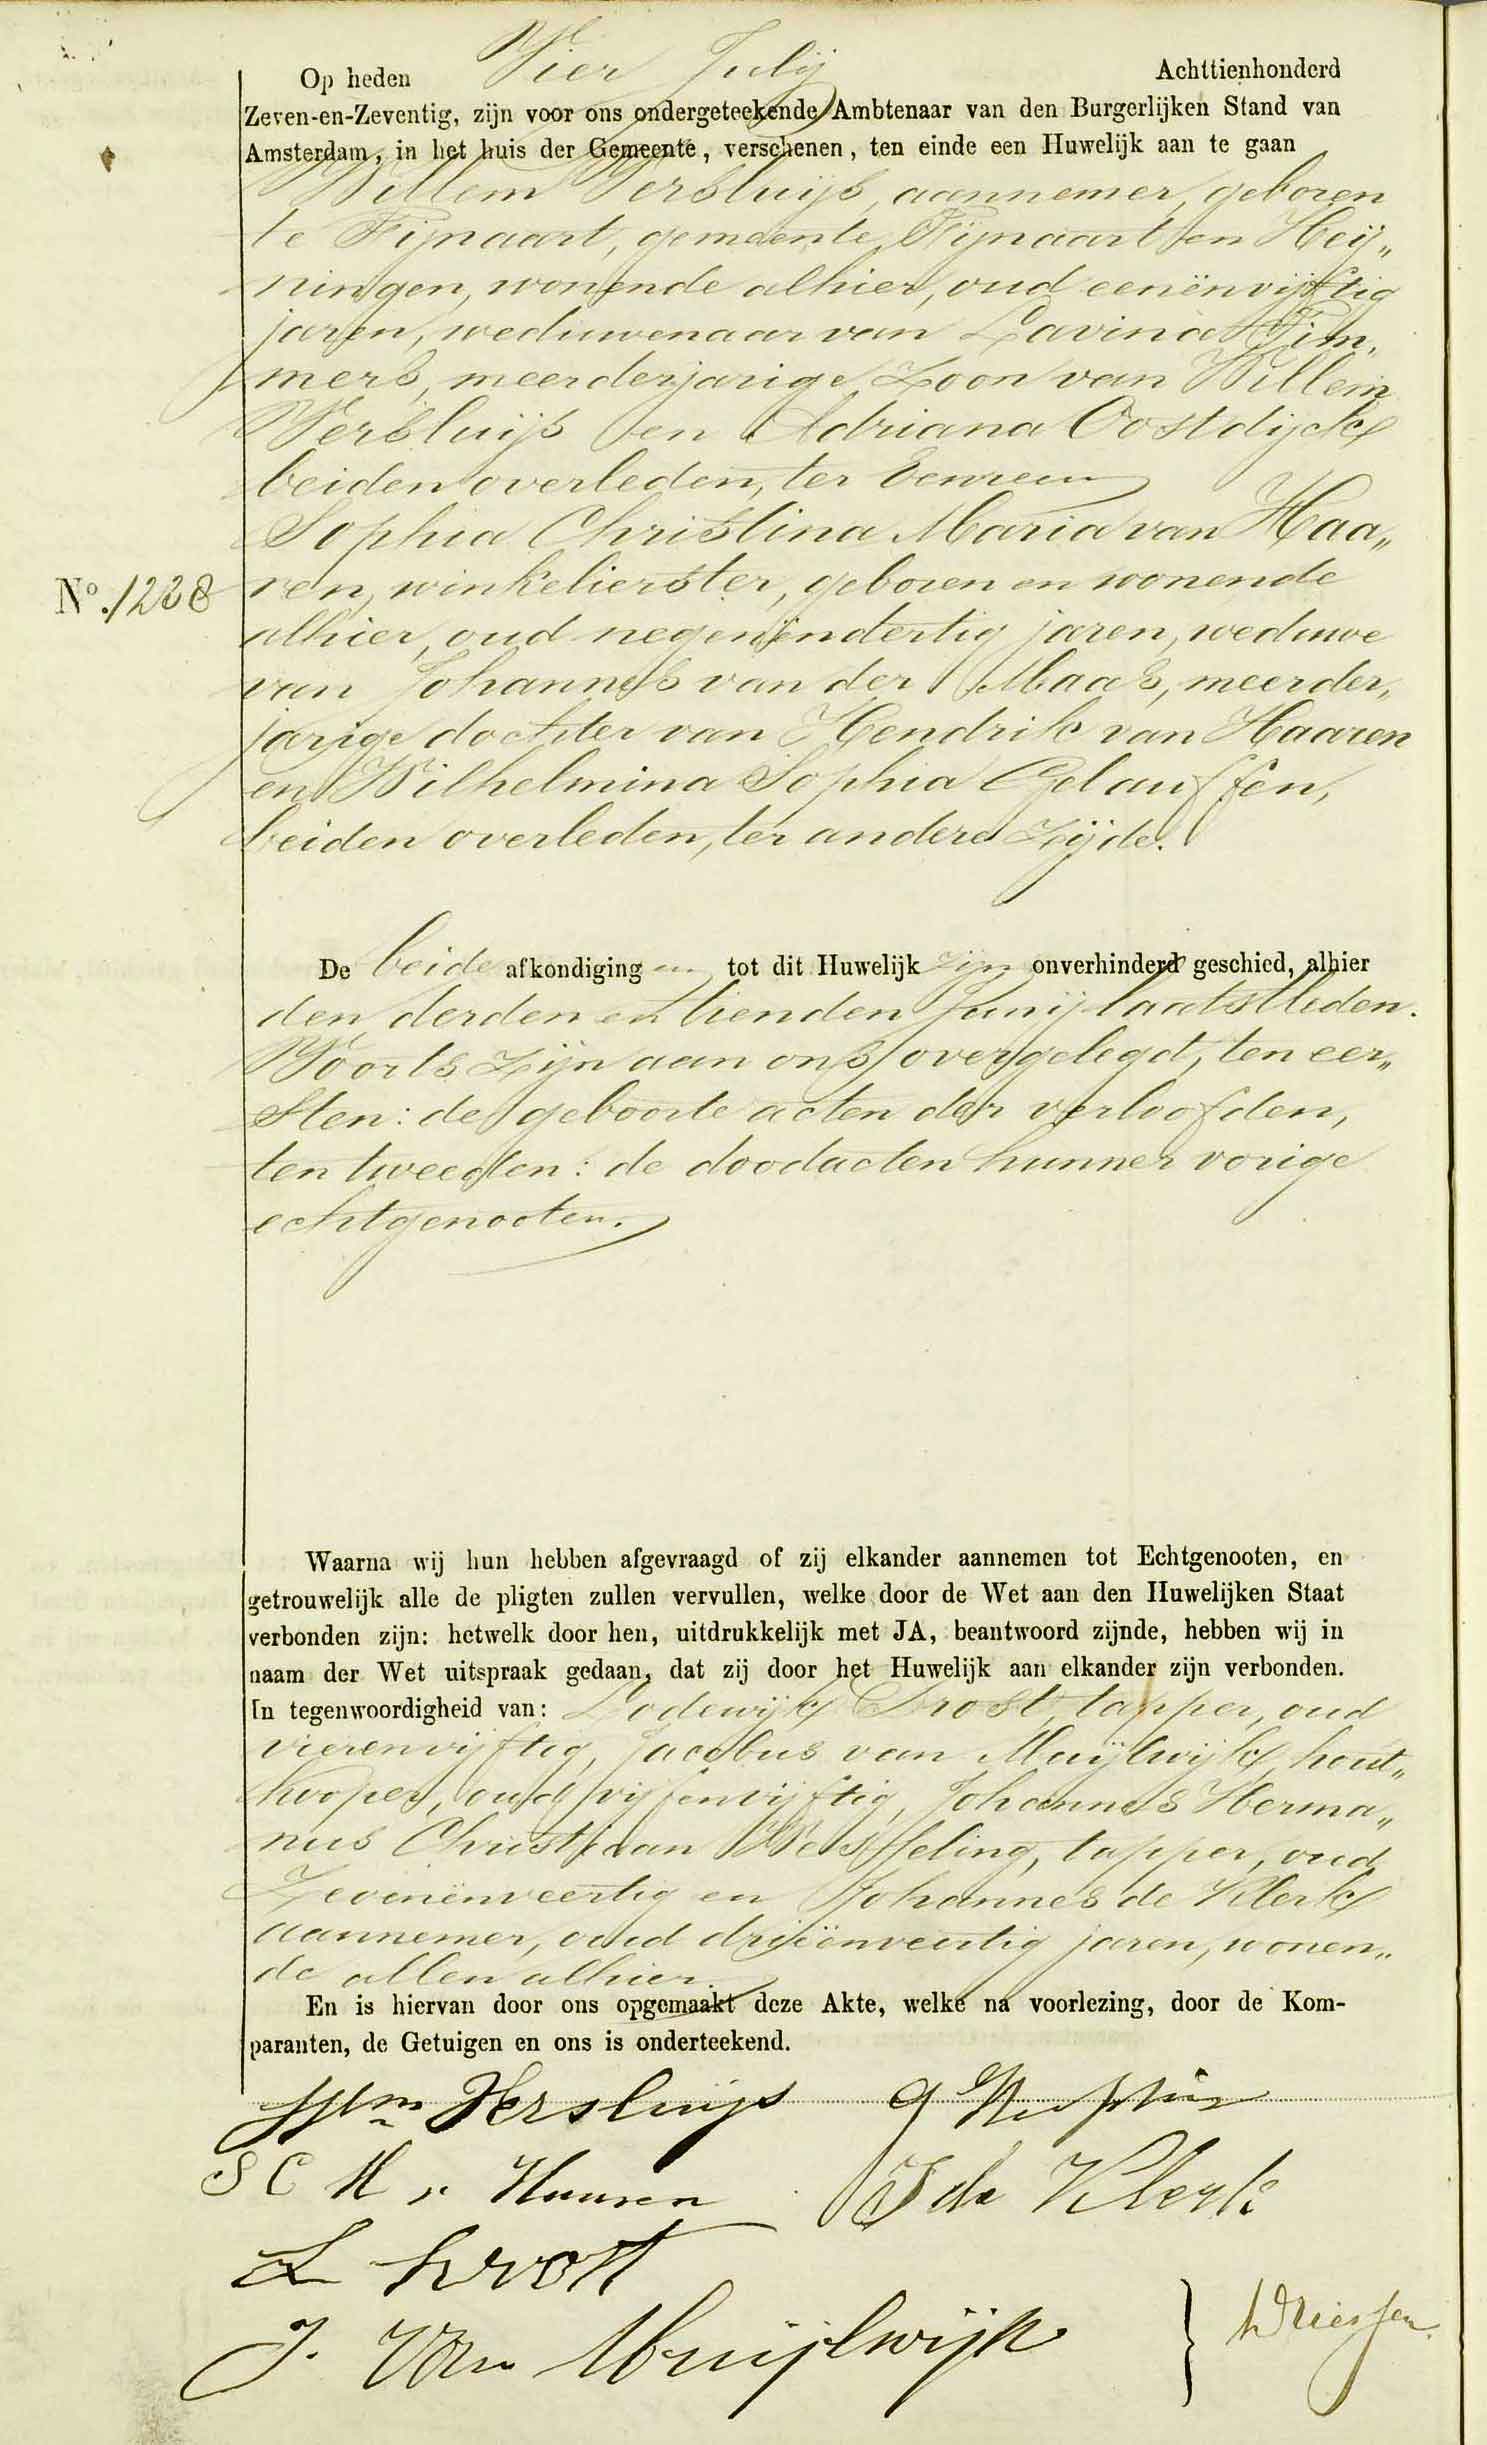 Op heden Vier Julij Achttienhonderd
Zeven-en-Zeventig, zijn voor ons ondergeteekende Ambtenaar van den Burgerlijken Stand van
Amsterdam, in het huis der Gemeente, verschenen, ten einde een Huwelijk aan te gaan
Willem Versluijs, aannemer, geboren
te Fijnaart, gemeente Fijnaart en Heij„
ningen, wonende alhier, oud eenënvijftig
jaren, weduwenaar van Lavina Tim„
mers, meerderjarige Zoon van Willem
Versluijs en Adriana Oostdijck
beiden overleden, ter Eenre en
Sophia Christina Maria van Haa„
No. 1228
ren, winkelierster, geboren en wonende
alhier, oud negenëndertig jaren, weduwe
van Johannes van der Maas, meerder„
jarige dochter van Hendrik van Haaren
en Wilhelmina Sophia Gelauffen,
beiden overleden, ter andere Zijde.
De beide afkondiging en tot dit Huwelijk zijn onverhinderd geschied, alhier
den derden en tienden Junij laatstleden.
Voorts Zijn aan ons overgelegd, ten eer„
sten: de geboorte acten der verloofden,
ten tweeden: de doodacten hunner vorige
echtgenooten.
Waarna wij hun hebben afgevraagd of zij elkander aannemen tot Echtgenooten, en
getrouwelijk alle de pligten zullen vervullen, welke door de Wet aan den Huwelijken Staat
verbonden zijn: hetwelk door hen, uitdrukkelijk met JA, beantwoord zijnde, hebben wij in
naam der Wet uitspraak gedaan, dat zij door het Huwelijk aan elkander zijn verbonden.
In tegenwoordigheid van: Lodewijk Drost, tapper, oud
vierenvijftig, Jacobus van Muijlwijk, hout„
kooper, oud vijfenvijftig, Johannes Herma„
nus Christiaan Wesseling, tapper, oud
Zevenënveertig en Johannes de Klerk
aannemer, oud drieënveertig jaren, wonen„
de allen alhier.
En is hiervan door ons opgemaakt deze Akte, welke na voorlezing, door de Kom-
paranten, de Getuigen en ons is onderteekend.
Wm Versluijs
S C M v Haaren
J de Klerk
L Drost
J. Van Muijlwijk